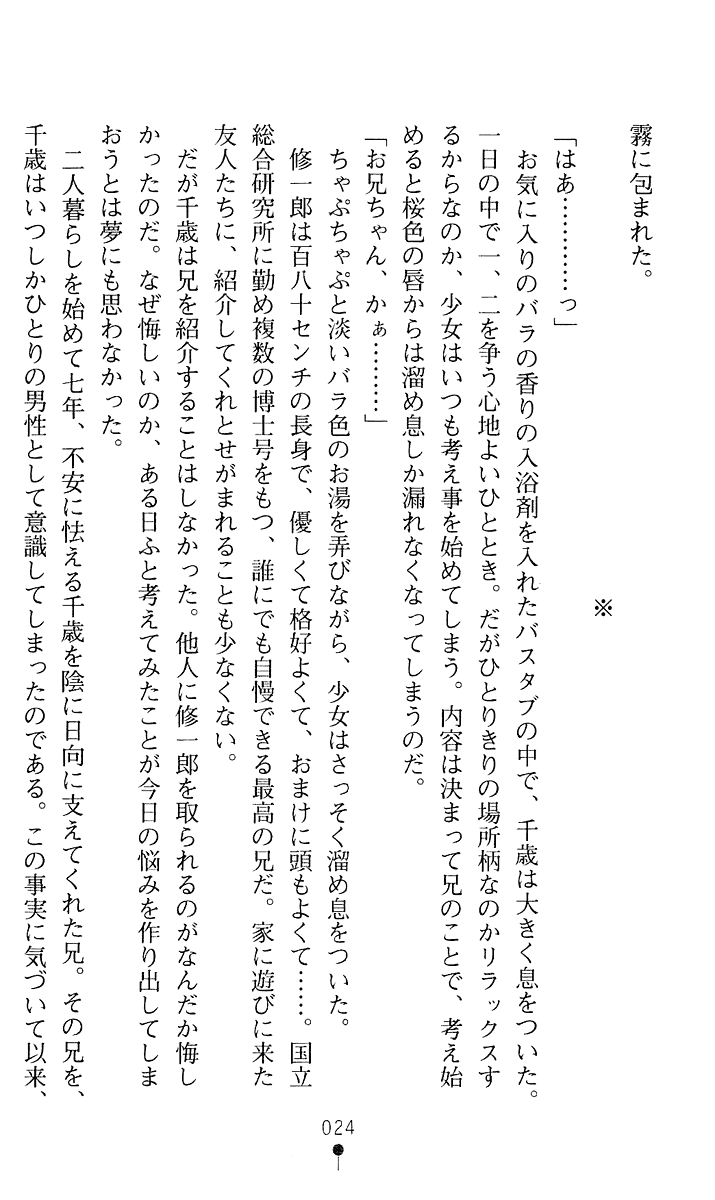 霧に包まれた。
※
「はあ…………っ」
お気に入りのバラの香りの入浴剤を入れたバスタブの中で、千歳は大きく息をついた。
一日の中で一、二を争う心地よいひととき。だがひとりきりの場所柄なのかリラックスす
るからなのか、少女はいつも考え事を始めてしまう。内容は決まって兄のことで、考え始
めると桜色の唇からは溜め息しか漏れなくなってしまうのだ。
「お兄ちゃん、かぁ………」
ちゃぷちゃぷと淡いバラ色のお湯を弄びながら、少女はさっそく溜め息をついた。
修一郎は百八十センチの長身で、優しくて格好よくて、おまけに頭もよくて……。国立
総合研究所に勤め複数の博士号をもつ、誰にでも自慢できる最高の兄だ。家に遊びに来た
友人たちに、紹介してくれとせがまれることも少なくない。
だが千歳は兄を紹介することはしなかった。他人に修一郎を取られるのがなんだか悔し
かったのだ。なぜ悔しいのか、ある日ふと考えてみたことが今日の悩みを作り出してしま
おうとは夢にも思わなかった。
二人暮らしを始めて七年、不安に怯える千歳を陰に日向に支えてくれた兄。その兄を、
千歳はいつしかひとりの男性として意識してしまったのである。この事実に気づいて以来、
024